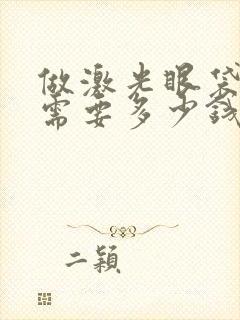 做激光眼袋
需要多少钱
二颖